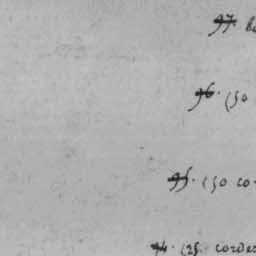 97.
96. (50
95. (50 co
94. (25. corde